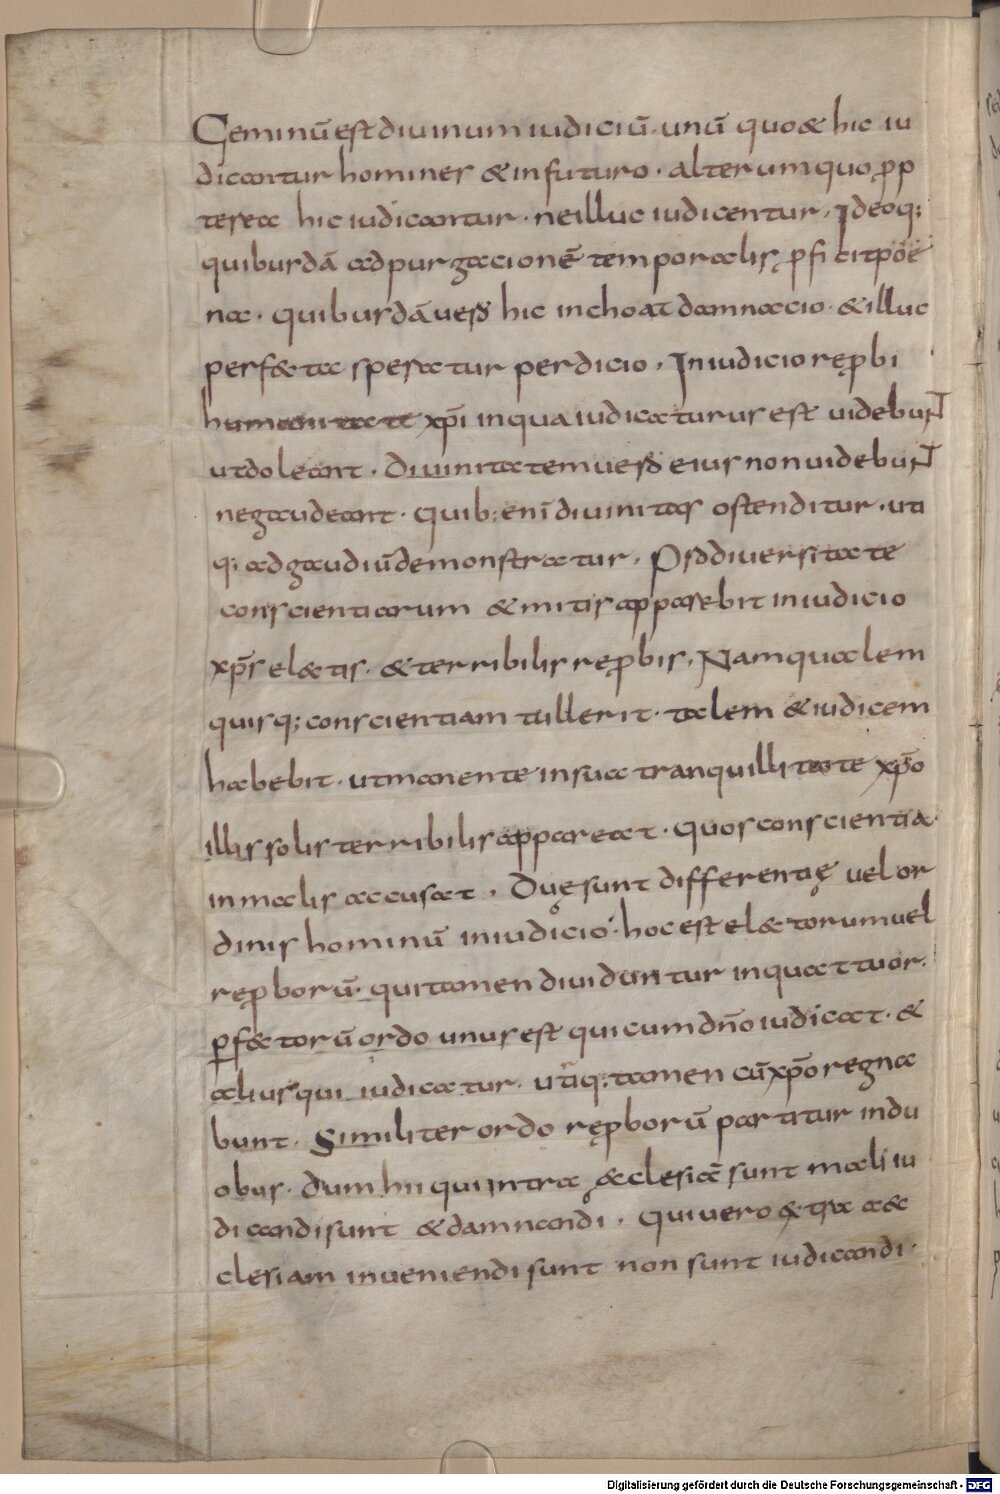 Geminū est divinum iudiciū. unū quo & hic iu
dicantur homines & in futuro. alterum quo prop
terea hic iudicantur. ne illuc iudicentur. Ideoq;
quibusdā ad purgacionē temporalis proficit poe
na. quibusdā vero hic inchoat damnacio. & illuc
perf&ta speratur perdicio. In iudicio reprobi
humanitate xp̄i in qua iudicaturus est videbunt
ut doleant. Divinitatem vero eius non videbunt
ne gaudeant. Quib; enī divinitas ostenditur. uti
q; ad gaudiū demonstratur. Pro diversitate
conscientiarum & mitis apparebit in iudicio
xp̄s el&tis. & terribilis reprobis. Nam qualem
quisq; conscientiam tullerit. talem & iudicem
habebit. ut manente in sua tranquillitate xp̄o
illis solis terribilis appareat. quos conscientia
in malis accusat. Duę sunt differentię vel or
dinis hominū in iudicio. hoc est el&torum vel
reproborū. qui tamen dividuntur in quattuor.
perf&torū ordo unus est qui cum dn̄o iudicat. &
alius qui iudicatur. utiq; tamen cū xp̄o regna
bunt. Similiter ordo reproborū partitur in du
obus. dum hii qui intra &clesiā sunt mali iu
dicandi sunt & damnandi. Qui vero &tra &
clesiam inveniendi sunt non sunt iudicandi.
Digitalisierung gefördert durch die Deutsche Forschungsgemeinschaft - DFG